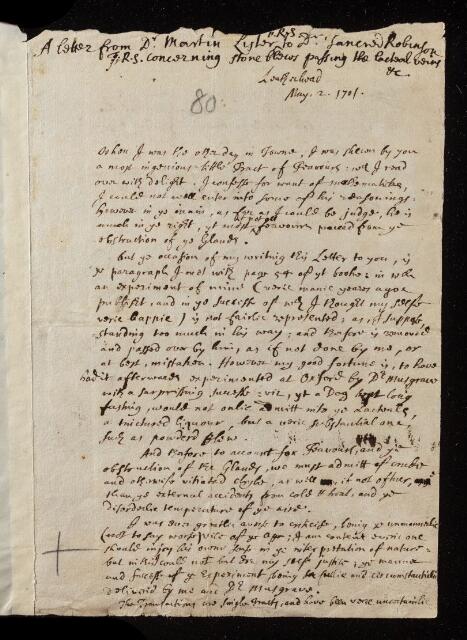 A letter from Dr Martin Lister FRS to Dr Tancred Robinson
F.R.S. concerning stone blew's passing the lacteal veins
&c
Leatherhead
May. 2. 1701.
80
When I was the other day in Towne, I was shewn by you
a most ingenious little Tract of Feavours: wch I read
over with delight. I confesse for want of mathematickes,
I could not well enter into some of his reasonings.
however in ye main, as far as I could be judge, he is
much in ye right, yt most Feavours proceed from ye
obstruction of ye Glands.
but ye occasion of my writing this Letter to you, is
ye paragraph I met with page 54 of yt booke: in wch
an experiment of mine (verie manie yeares agoe
publisht, and in ye successe of wch I thought my selfe
verie happie) is not fairlie represented; as, I suppose
standing too much in his way; and therefore is removed
and passed over by him, as if not done by me, or
at best, mistaken. However my good fortune is, to have
had it afterwards experimented at Oxford by Dr Musgrave
with a surprissing successe: viz, yt a Dog kept long
fasting, would not onlie admitt into ye Lacteals,
a tinctured Liquour, but a verie substantial one,
such as powderd blew.
And therefore to account for Feavours, and ye
obstruction of the Glands, we must admitt of crude
and otherwise vitiated chyle, as well if not oftner,
than ye external accidents from cold & heat, and ye
disorderlie temperature of ye aire.
I was ever greatlie averse to criticise, being ye unmannerlie
(not to say worse) vice of ye Age; I am content everie one
should injoy his owne in ye interpretation of nature:
but in this I could not but doe my selfe justice; ye manner
and successe of ye Experiment being publie and circumstantiallie
delivered by me and Dr Musgrave.
The Transactions are single tracts, and have been verie uncertainlie